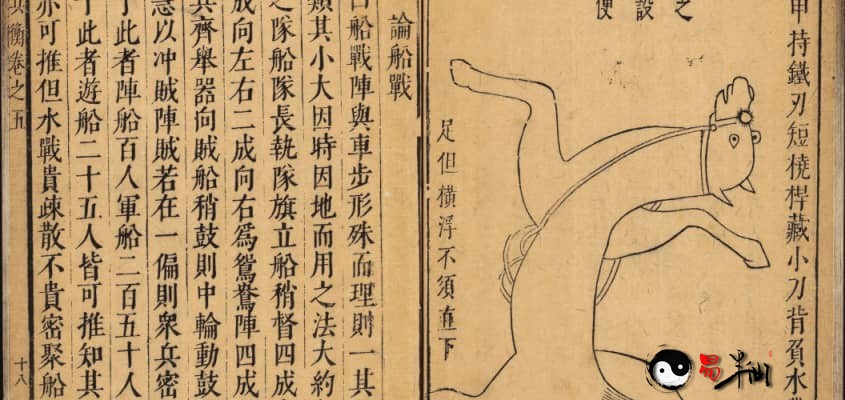 甲持鐵刃短橈桿藏小刀背負水
之
設
便
足但橫浮不須直下
論船戰
船戰陣與車步形殊而理則一其
類其小大因時因地而用之法大約
隊船隊長執隊旗立船稍督四成
成向左右二成向右爲鴛鴦陣四成
兵齊舉器向賊船稍鼓則中輪動鼓
急以冲賊陣賊若在一偏則衆兵密
于此者陣船百人軍船二百五十人
此者遊船二十五人皆可推知其
亦可推但水戰貴疎散不貴密聚船
兵衡卷之五
十八
易半仙